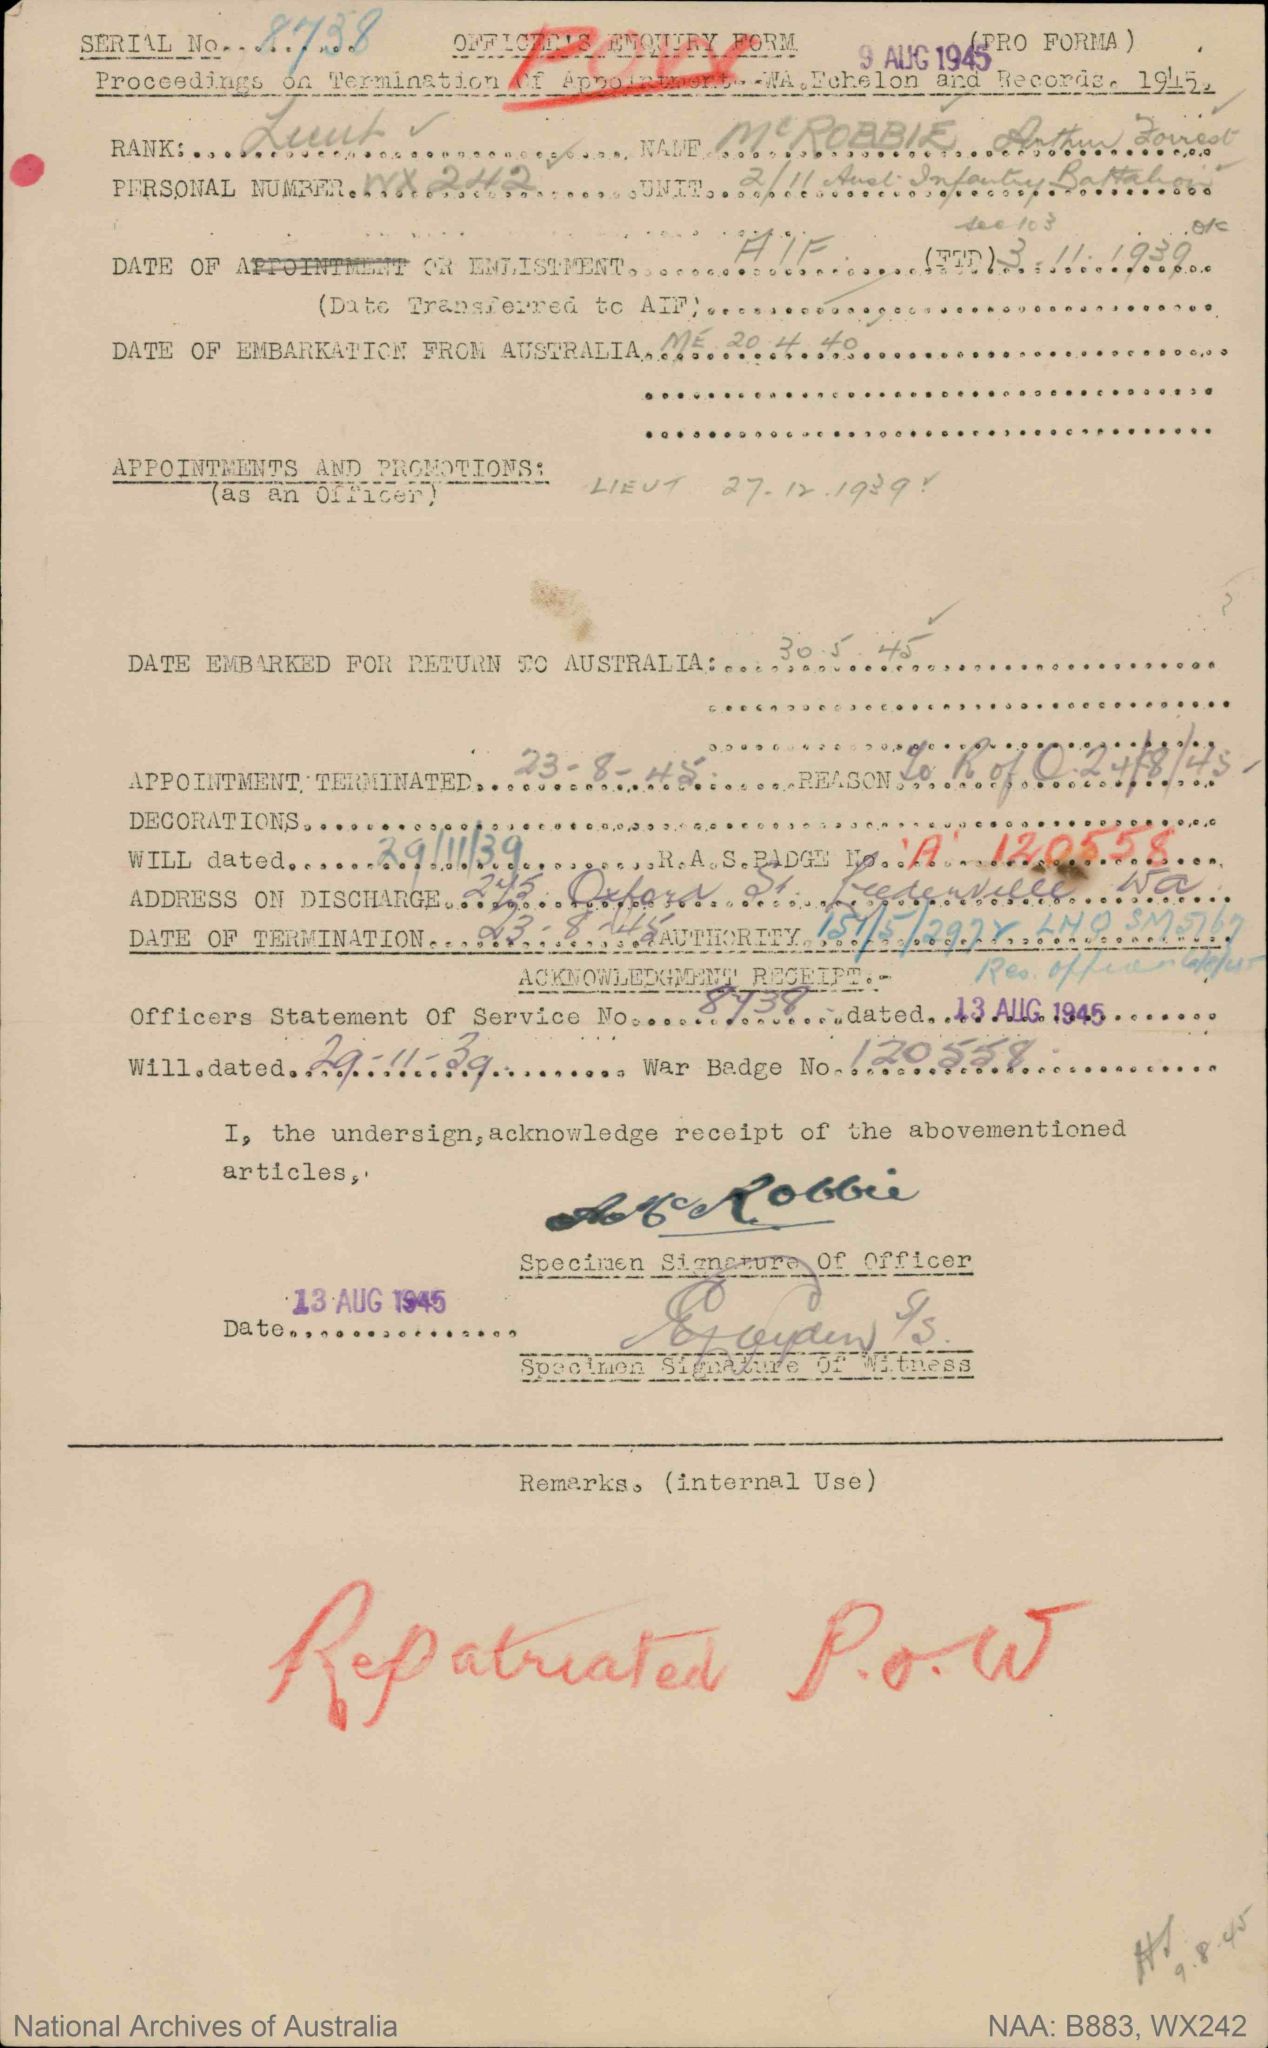 SERIAL No. 8738 OFFICER'S ENQUIRY FORM (PRO FORMA)
9 AUG 1945
Proceedings on Termination of Appointment--WA.Echelon and Records. 1945.
RANK: Lieut NAME McROBBIE Arthur Forrest
PERSONAL NUMBER WX 242 UNIT 2/11 Aust Infantry Battalion
see 103 OK
DATE OF APPOINTMENT OR ENLISTMENT AIF (FTD) 3.11.1939
(Date Transferred to AIF)
DATE OF EMBARKATION FROM AUSTRALIA ME 20 4 40
APPOINTMENTS AND PROMOTIONS:
(as an Officer) LIEUT 27.12.1939
DATE EMBARKED FOR RETURN TO AUSTRALIA: 30.5.45
APPOINTMENT TERMINATED 23-8-45 REASON To R of O 24/8/45
DECORATIONS
WILL dated 29/11/39 R.A.S.BADGE No. 'A' 120558
ADDRESS ON DISCHARGE 245 Oxford St. Leederville Wa
DATE OF TERMINATION 23-8-45 AUTHORITY LHQ SM5767
ACKNOWLEDGMENT RECEIPT:-
Officers Statement Of Service No. 8738 dated 13 AUG 1945
Will.dated 29-11-39 War Badge No. 120558
I, the undersign,acknowledge receipt of the abovementioned
articles,
A McRobbie
Specimen Signature Of Officer
13 AUG 1945
Date
Specimen Signature Of Witness
Remarks. (internal Use)
Repatriated P.o.W
9.8.45
National Archives of Australia NAA: B883, WX242